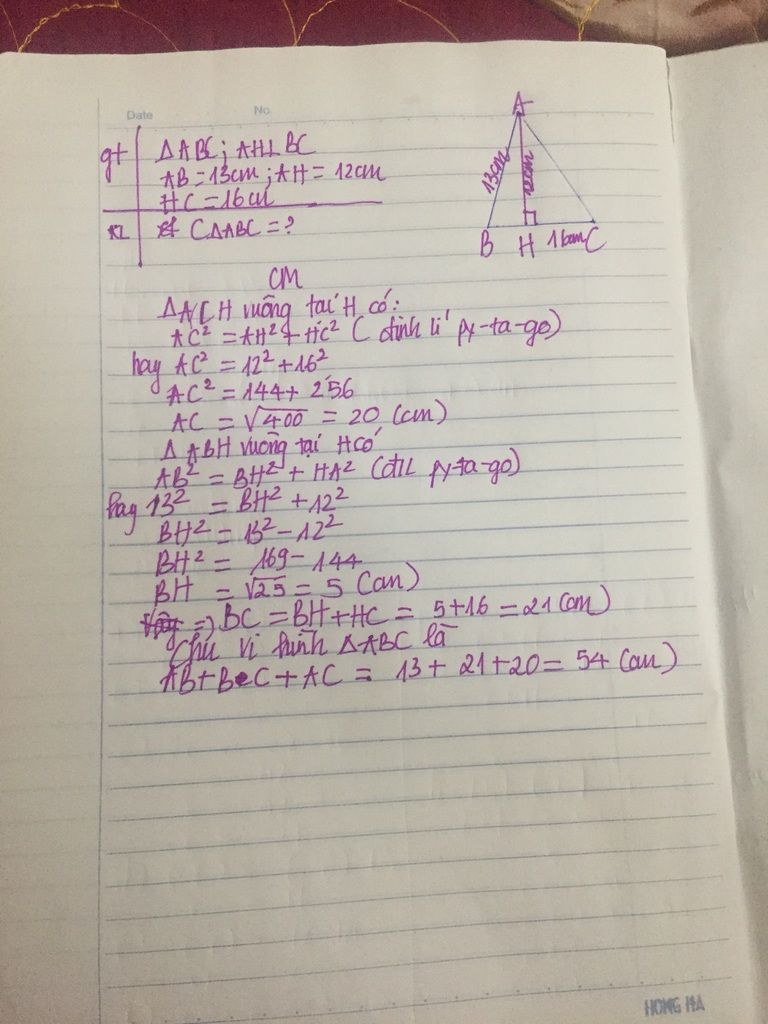 Date No.
gt ΔABC; AH⊥BC
AB = 13cm; AH = 12cm
HC = 16cm
KL CΔABC = ?
A
13cm
12cm
B H 16cm C
CM
ΔACH vuông tại H có:
AC² = AH² + HC² ( định lí py-ta-go)
hay AC² = 12² + 16²
AC² = 144 + 256
AC = √400 = 20 (cm)
Δ ABH vuông tại H có
AB² = BH² + HA² (đlí py-ta-go)
hay 13² = BH² + 12²
BH² = 13² - 12²
BH² = 169 - 144
BH = √25 = 5 (cm)
=> BC = BH + HC = 5 + 16 = 21 (cm)
Chu vi hình ΔABC là
AB + BC + AC = 13 + 21 + 20 = 54 (cm)
HONG HA